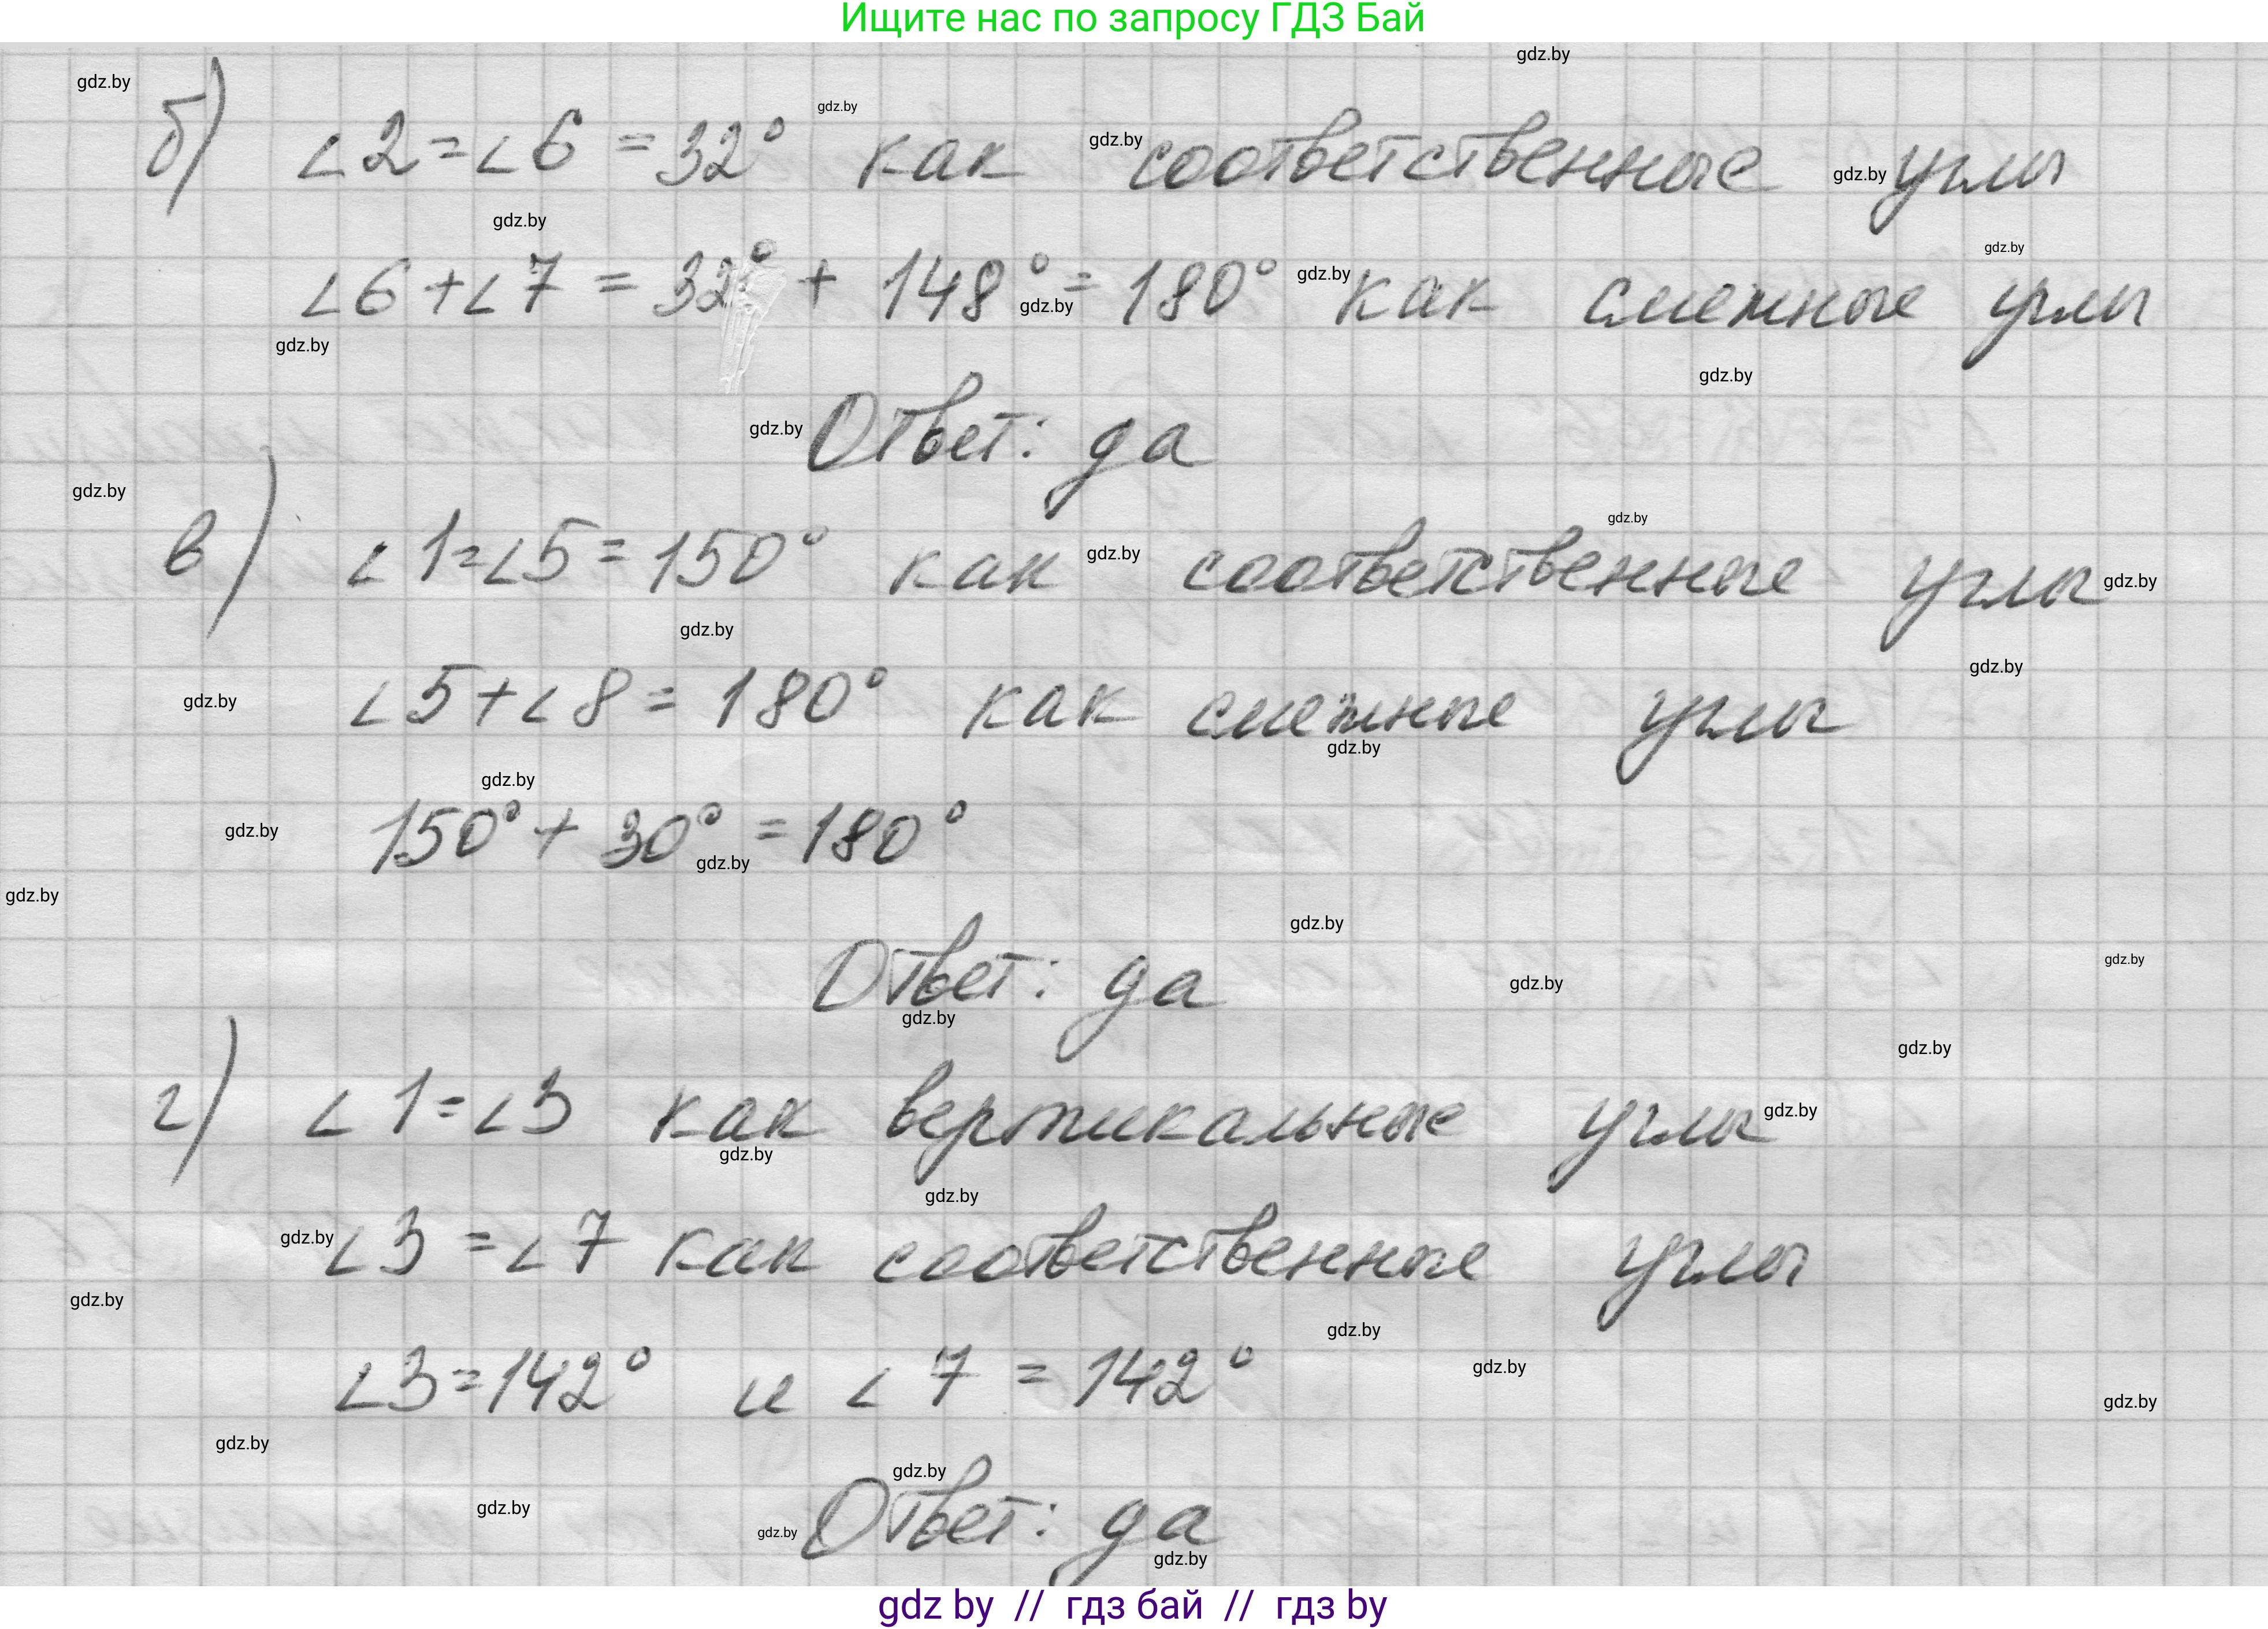 Ищите нас по запросу ГДЗ Бай
б) ∠2=∠6 = 32° как соответственные углы
∠6+∠7 = 32° + 148° = 180° как смежные углы
Ответ: да
в) ∠1=∠5 = 150° как соответственные углы
∠5+∠8 = 180° как смежные углы
150° + 30° = 180°
Ответ: да
г) ∠1=∠3 как вертикальные углы
∠3 = ∠7 как соответственные углы
∠3=142° и ∠7 = 142°
Ответ: да
gdz by // гдз бай // гдз by